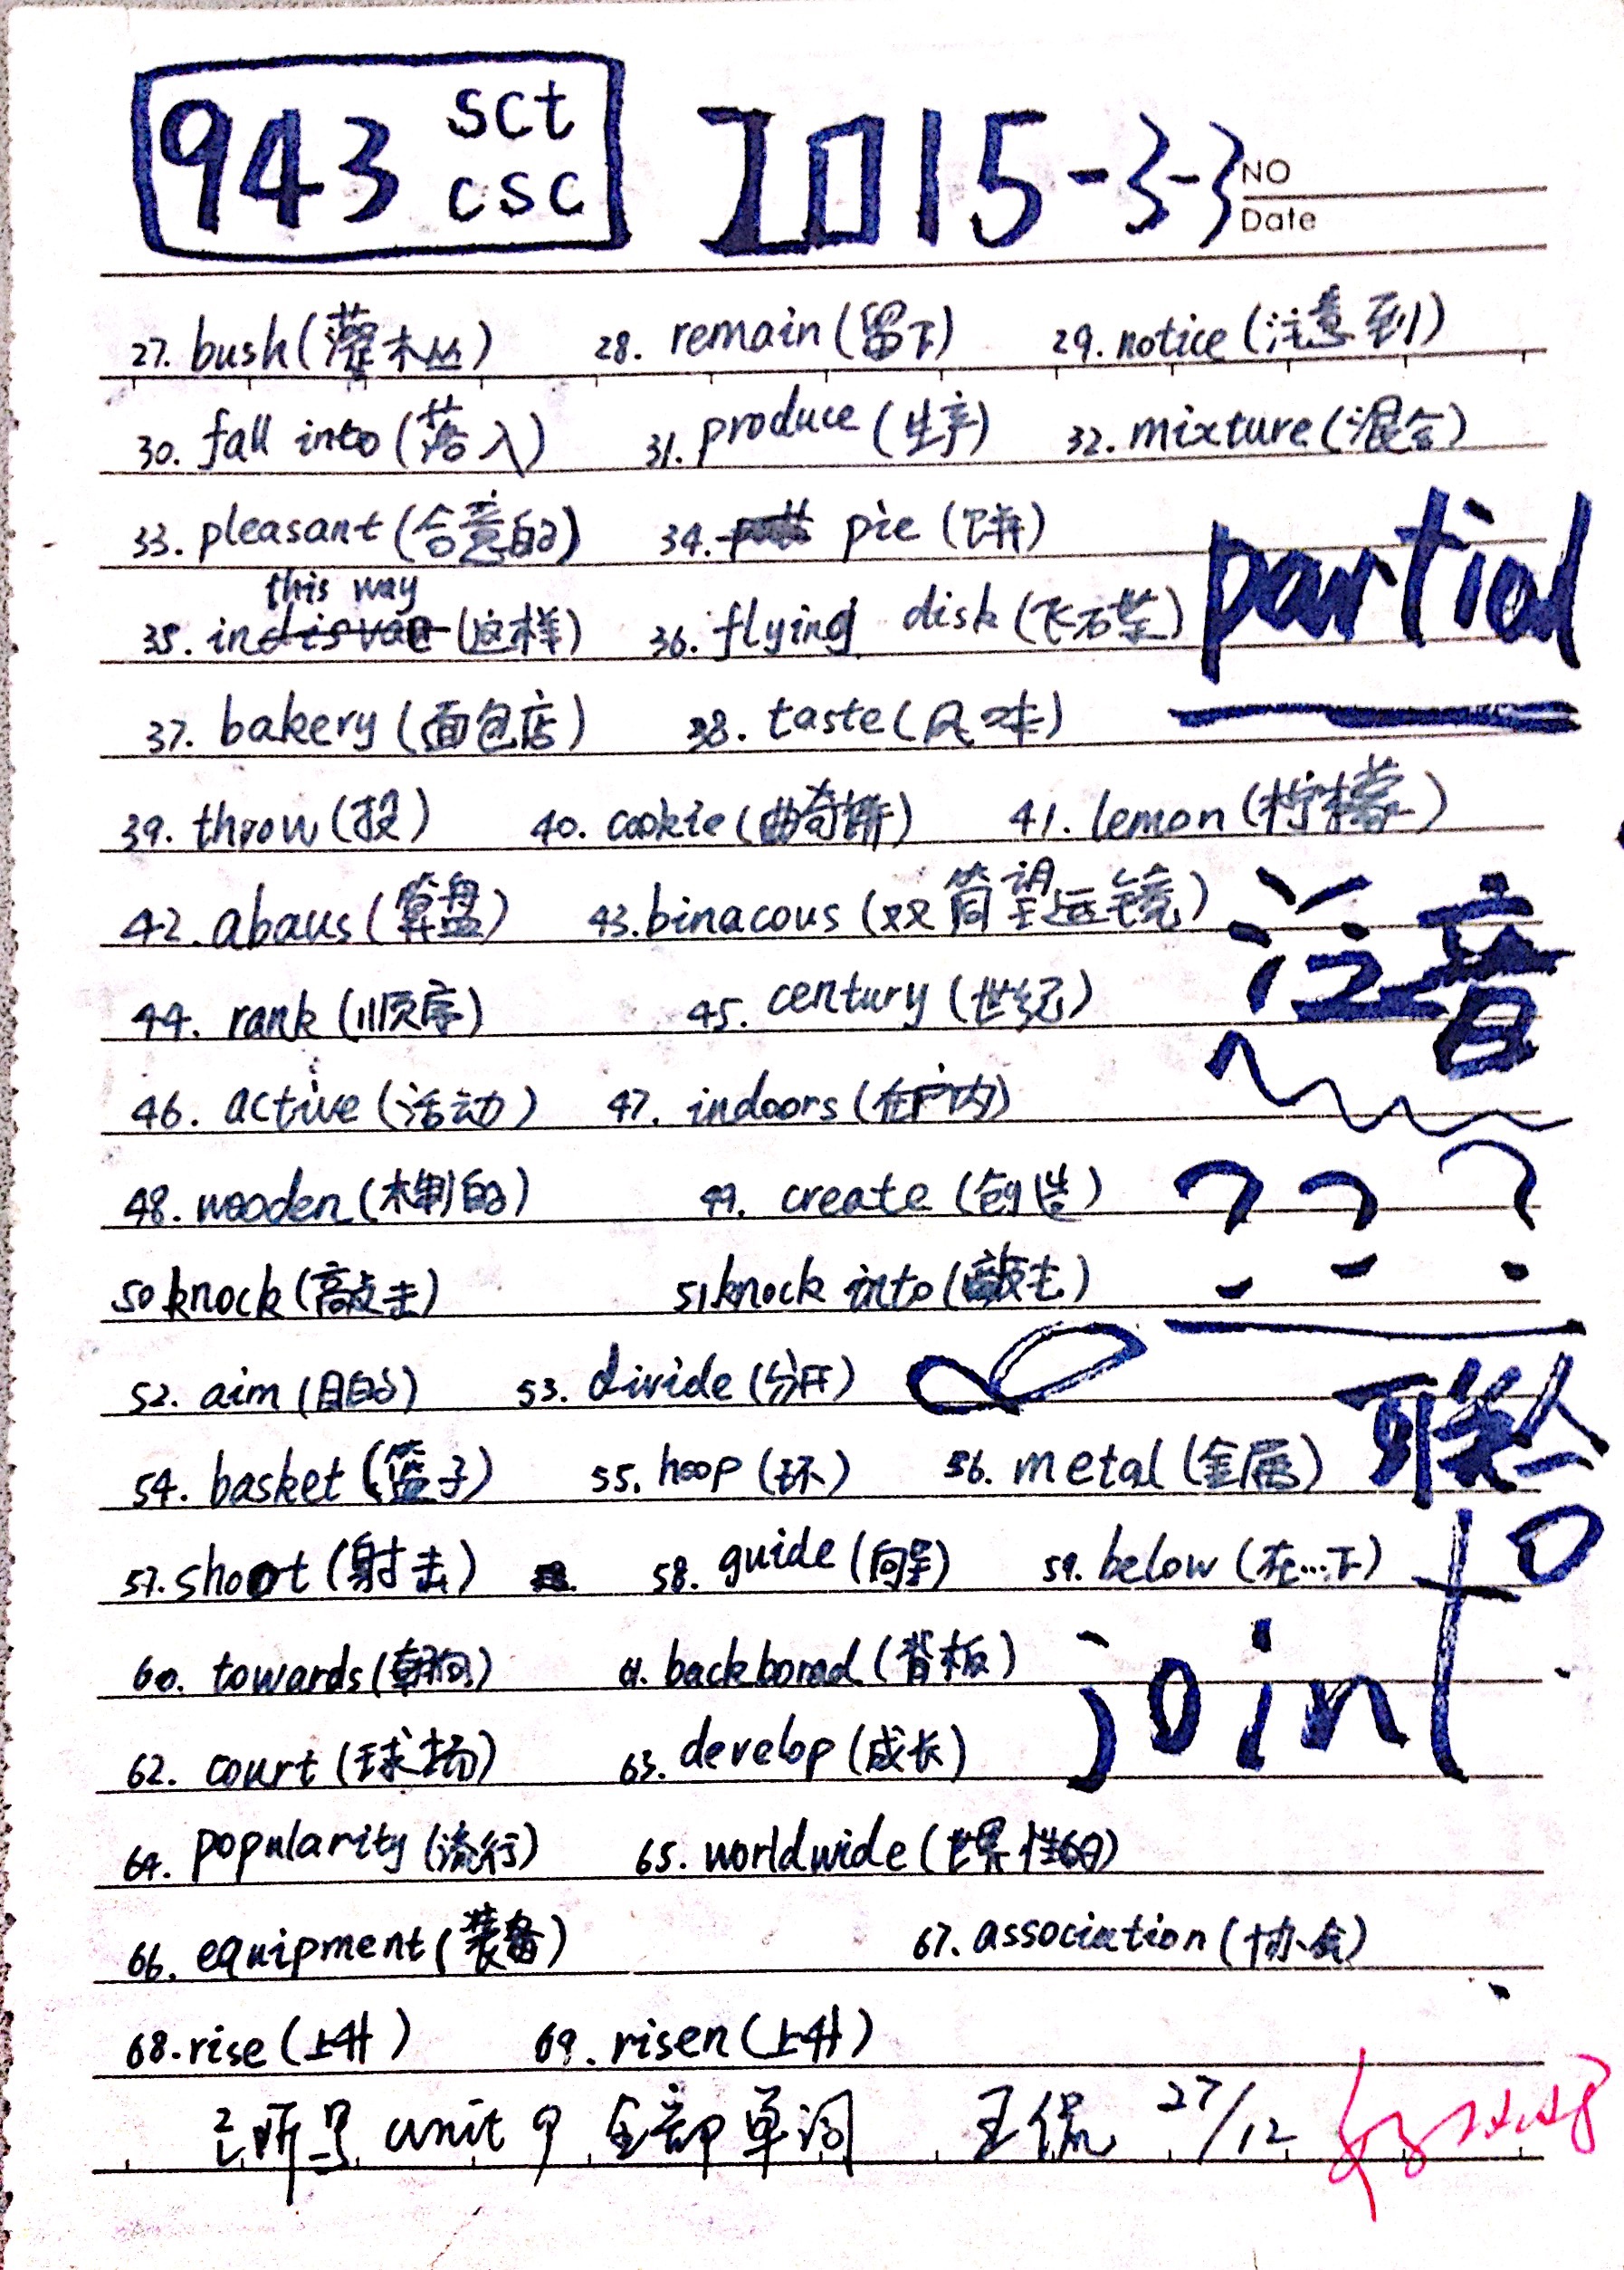 943 sct csc 2015-3-3 NO
Date
27. bush (灌木丛) 28. remain (留下) 29. notice (注意到)
30. fall into (落入) 31. produce (生产) 32. mixture (混合)
33. pleasant (合意的) 34. pie (饼)
partial
this way
35. in (这样) 36. flying disk (飞石茔)
37. bakery (面包店) 38. taste (风味)
39. throw (投) 40. cookie (曲奇饼) 41. lemon (柠檬)
42. abaus (算盘) 43. binacous (双筒望远镜)
注音
44. rank (顺序) 45. century (世纪)
46. active (活动) 47. indoors (在户内)
48. wooden (木制的) 49. create (创造)
? ? ?
50 knock (敲击) 51 knock into (敲击)
52. aim (目的) 53. divide (分开)
联合
54. basket (篮子) 55. hoop (环) 56. metal (金属)
57. shoot (射击) 58. guide (向导) 59. below (在…下)
60. towards (朝向) 61. backborad (背板)
joint
62. court (球场) 63. develop (成长)
64. popularity (流行) 65. worldwide (世界性的)
66. equipment (装备) 67. association (协会)
68. rise (上升) 69. risen (上升)
已听写 unit 9 全部单词 王侃 27/12